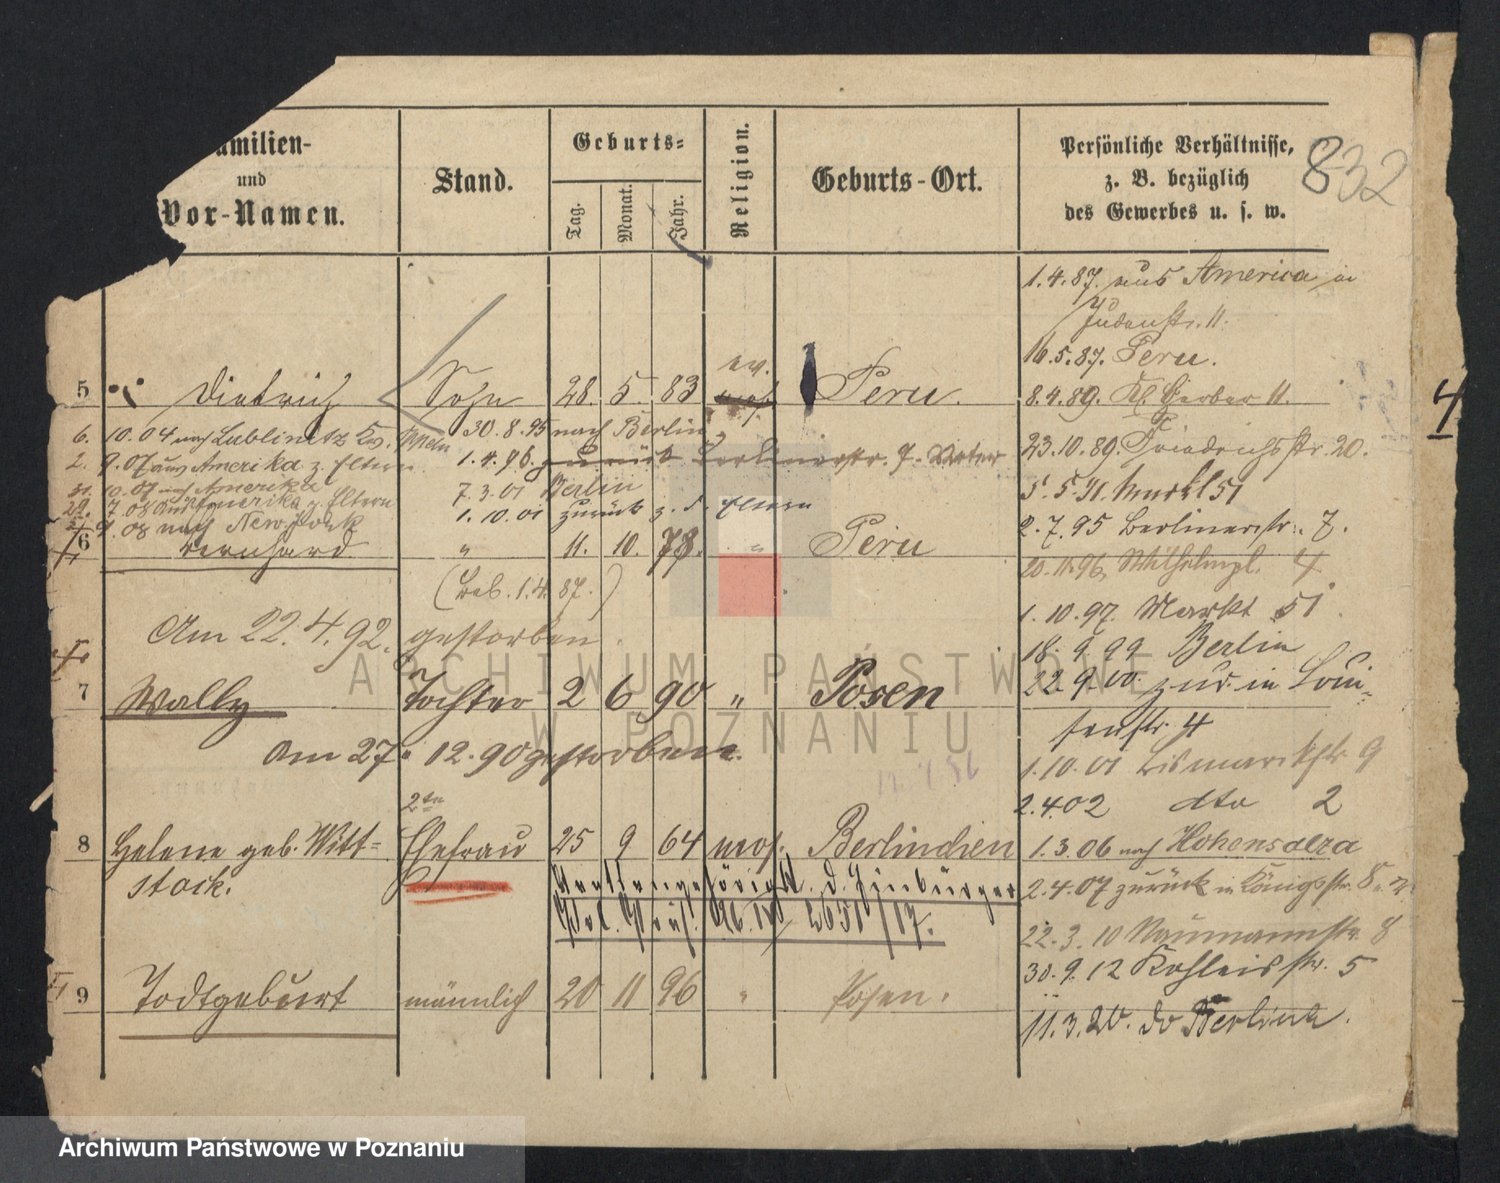 Familien-
und
Vor-Namen.
Stand.
Geburts-
Tag.
Monat.
Jahr.
Religion.
Geburts-Ort.
Persönliche Verhältnisse,
z. B. bezüglich
des Gewerbes u. s. w.
832
1.4.87. aus America in
Judenstr. 11.
16.5.87. Peru.
ev.
5 Dietrich Sohn 28. 5. 83 mos. Peru.
8.4.89. Kl Gerber 11.
6. 10.04 nach Lublinitz
30.8.95 nach Berlin
23.10.89. Friedrichstr. 20.
2. 9.07 aus Amerika z. Eltern
1.4.96. zurück Berlinerstr. 7. Vater
31. 10.07 nach Amerika
7.3.01 Berlin
5.5.91. Markt 51
29. 7.08 aus Amerika z. Eltern
1.10.01 zurück z. d. Eltern
9.08 nach New-York
2.7.95 Berlinerstr. 7.
6 Bernhard " 11. 10. 78. " Peru
20.11.96 Wilhelmpl. 4
(Leb. 1.4.87.)
1.10.97. Markt 51.
Am 22.4.92. gestorben.
18.9.99 Berlin
7 Wally Tochter 2 6 90 " Posen
22.9.00. zur. in Loui-
senstr. 4
Am 27. 12.90 gestorben.
1.10.01 Bismarckstr 9
2te
2.4.02 dto 2
8 Helene geb. Witt= Ehefrau 25 9 64 mos. Berlinchen
stock.
1.3.06 nach Hohensalza
2.4.07 zurück in Königsstr. 8
2651/17.
22.3.10 Naumannstr. 8
30.9.12 Kohleisstr. 5
9 Todtgeburt männlich 20 11 96 " Posen.
11.3.20. do Berlin
4
ARCHIWUM PAŃSTWOWE
W POZNANIU
Archiwum Państwowe w Poznaniu